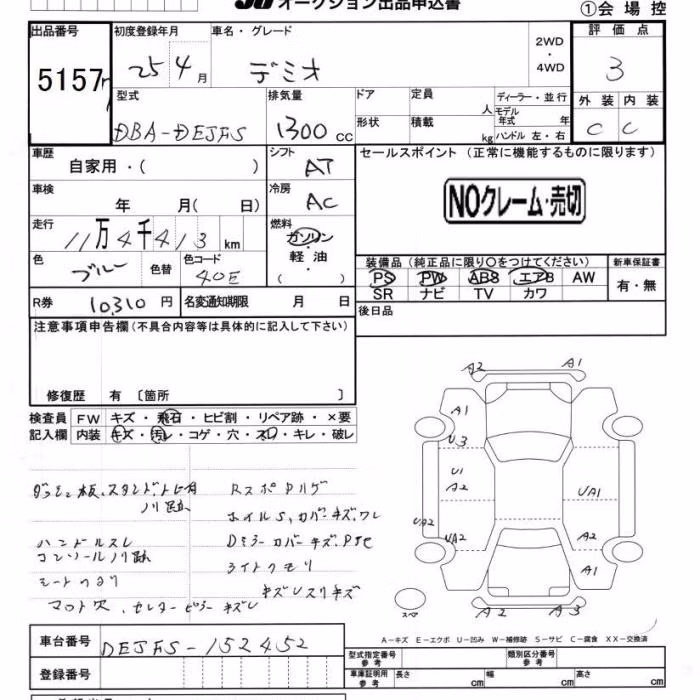 オークション出品申込書
①会場控
出品番号
5157
初度登録年月
25 4月
車名・グレード
デミオ
2WD
・
4WD
評価点
3
型式
DBA-DEJFS
排気量
1300 cc
ドア
定員
人
ディーラー・並行
モデル年式 年
形状
積載
kg
ハンドル 左・右
外装 内装
C C
車歴
自家用・( )
シフト
AT
セールスポイント (正常に機能するものに限ります)
NOクレーム・売切
車検
年 月( 日)
冷房
AC
走行
11万4千413km
燃料
ガソリン
・
軽油
( )
色
ブルー
色替
色コード
40E
装備品 (純正品に限り○をつけてください)
PS PW ABS エアB AW
SR ナビ TV カワ
新車保証書
有・無
R券 10,310円
名変通知期限 月 日
後日品
注意事項申告欄(不具合内容等は具体的に記入して下さい)
修復歴 有 〔箇所 〕
検査員 FW キズ・飛石・ヒビ割・リペア跡・×要
記入欄 内装 キズ・汚レ・コゲ・穴・スレ・キレ・破レ
ノリ跡
ハンドルスレ
コンソールノリ跡
ホイルS、カバーキズ、ワレ
Dミラーカバーキズ、
ライトクモリ
A2 A1
A1
U3
U1
A2
UA1
UA2
UA2
A2
A1
スペ
A2 A3
A-キズ E-エクボ U-凹み W-補修跡 S-サビ C-腐食 XX-交換済
車台番号
DEJFS-152452
登録番号
型式指定番号
参考
類別区分番号
参考
車庫証明用
参考
長さ cm
幅 cm
高さ cm